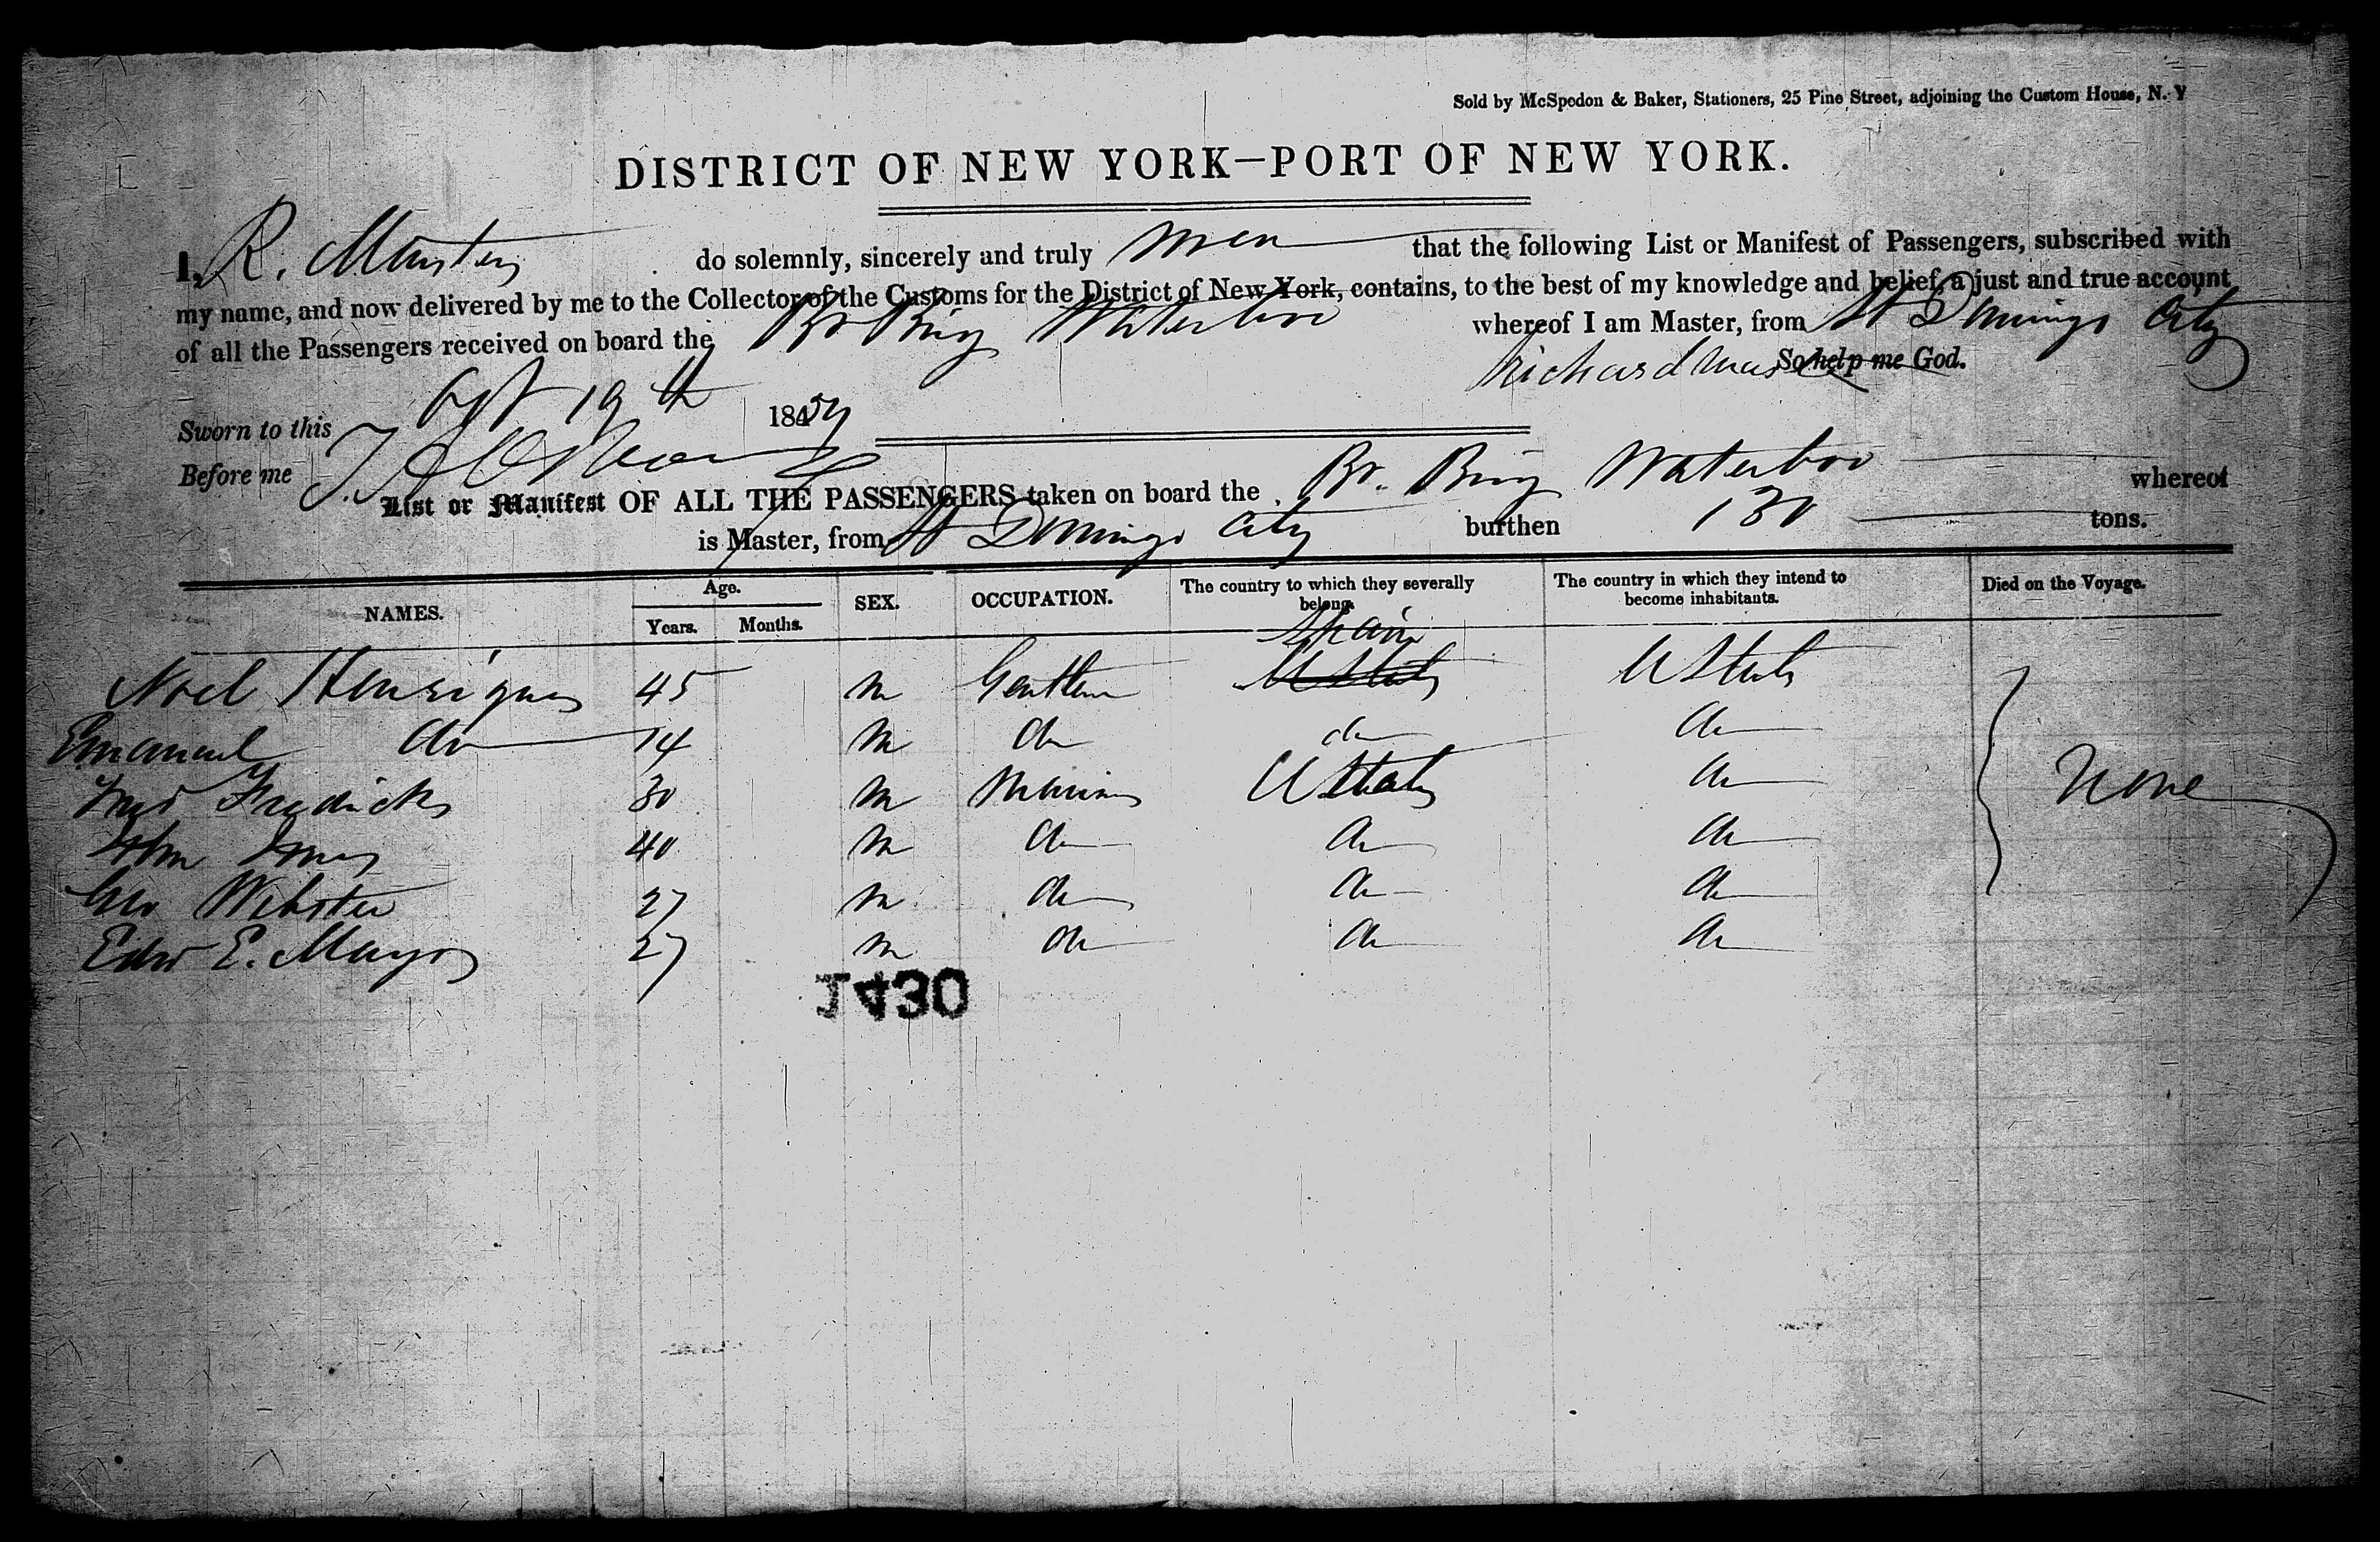 Sold by McSpedon & Baker, Stationers, 25 Pine Street, adjoining the Custom House, N. Y
DISTRICT OF NEW YORK—PORT OF NEW YORK.
I, R. do solemnly, sincerely and truly that the following List or Manifest of Passengers, subscribed with
my name, and now delivered by me to the Collector of the Customs for the District of New York, contains, to the best of my knowledge and belief, a just and true account
of all the Passengers received on board the Br Brig Waterloo whereof I am Master, from St Domingo City
Richard So help me God.
Sworn to this 19th 184
Before me
List or Manifest OF ALL THE PASSENGERS taken on board the Br. Brig Waterloo whereof
is Master, from St Domingo City burthen 130 tons.
NAMES. Age. Years. Months. SEX. OCCUPATION. The country to which they severally belong. The country in which they intend to become inhabitants. Died on the Voyage.
Spain
Noel Henriques 45 m Gentlem U States U States
Emanuel do 14 m do do do
Fredricks 30 m Mariner U States do None
John Jones 40 m do do do
Geo Webster 27 m do do do
Edw E. Mayo 27 m do do do
1430